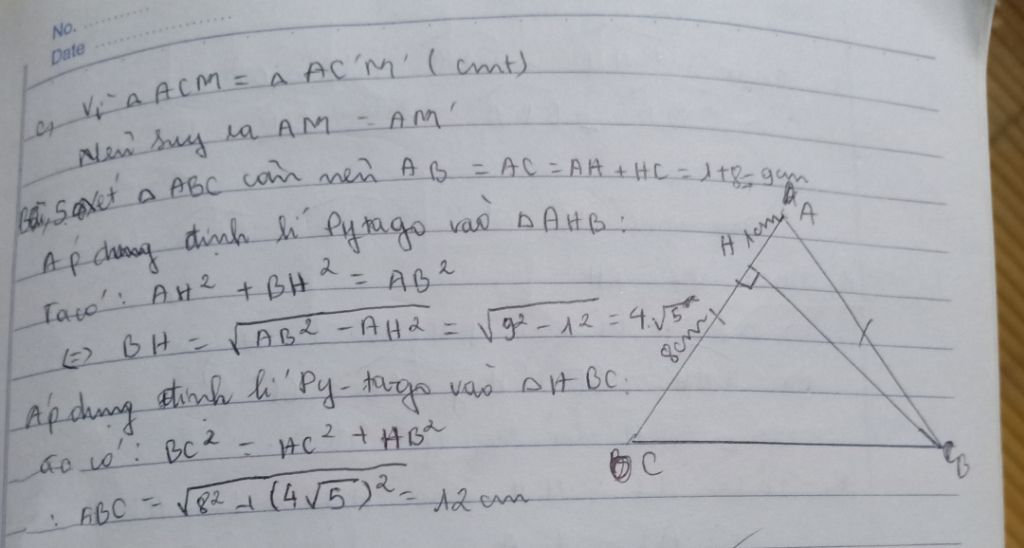 No.
Date
c, Vì △ ACM = △ AC'M' (cmt)
Nên suy ra AM = AM'
Bài 5. xét △ ABC cân nên AB = AC = AH + HC = 1+8= 9cm
Áp dụng định lí Pytago vào △AHB:
Ta có: AH² + BH² = AB²
(=) BH = √(AB² - AH²) = √(9² - 1²) = 4.√5
Áp dụng định lí Py-ta-go vào △HBC:
có: BC² = HC² + HB²
: ABC = √(8² + (4√5)²) = 12 cm
A
H 1cm
8cm
C
B